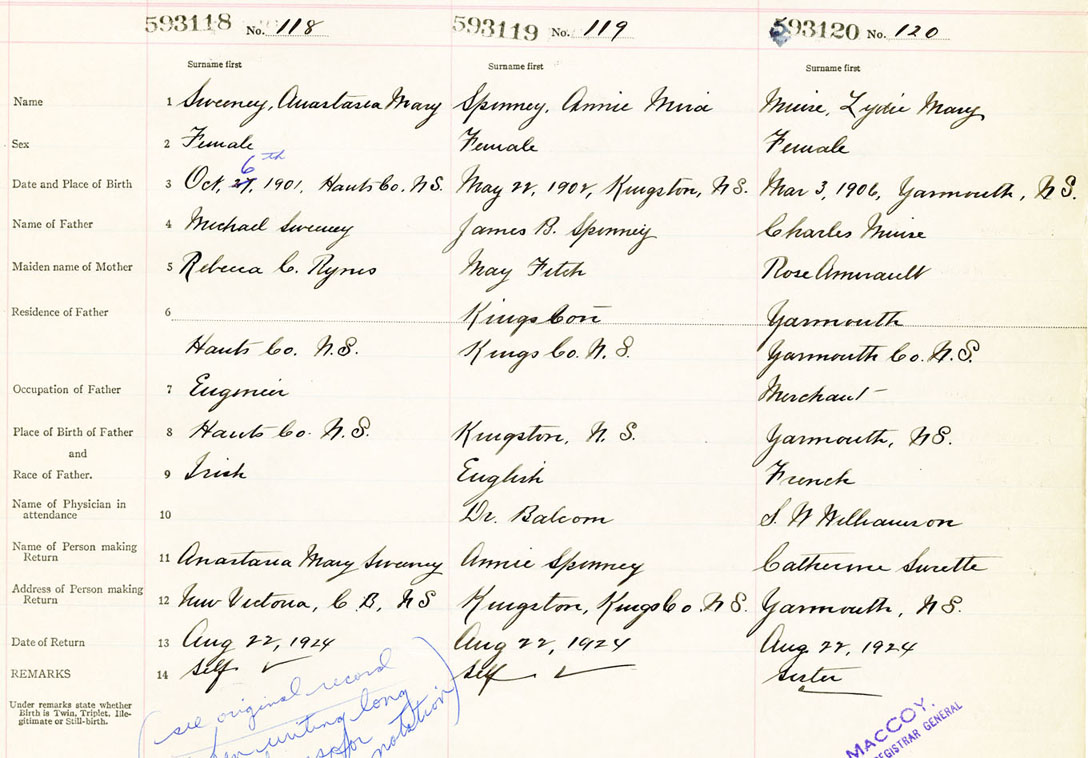 593118 No. 118 593119 No. 119 593120 No. 120
Surname first Surname first Surname first
Name 1 Sweeney, Anastasia Mary Spinney, Annie Muise, Lydie Mary
Sex 2 Female Female Female
6th
Date and Place of Birth 3 Oct. 27, 1901, Hants Co. N.S. May 22, 1902, Kingston, N.S. Mar 3, 1906, Yarmouth, N.S.
Name of Father 4 Michael Sweeney James B. Spinney Charles Muise
Maiden name of Mother 5 Rebecca C. May Fitch Rose Amirault
Residence of Father 6 Kingston Yarmouth
Hants Co. N.S. Kings Co. N.S. Yarmouth Co. N.S.
Occupation of Father 7 Engineer Merchant
Place of Birth of Father 8 Hants Co. N.S. Kingston, N.S. Yarmouth, N.S.
and
Race of Father. 9 Irish English French
Name of Physician in
attendance 10 Dr. Balcom S. W Williamson
Name of Person making
Return 11 Anastasia Mary Sweeney Annie Spinney Catherine Surette
Address of Person making
Return 12 New Victoria, C.B, NS Kingston, Kings Co. N.S. Yarmouth, N.S.
Date of Return 13 Aug 22, 1924 Aug 22, 1924 Aug 22, 1924
REMARKS 14 Self ✓ Self ✓ Sister
Under remarks state whether
Birth is Twin, Triplet, Ille-
gitimate or Still-birth.
(see original record
writing long
for notation)
MACCOY.
REGISTRAR GENERAL